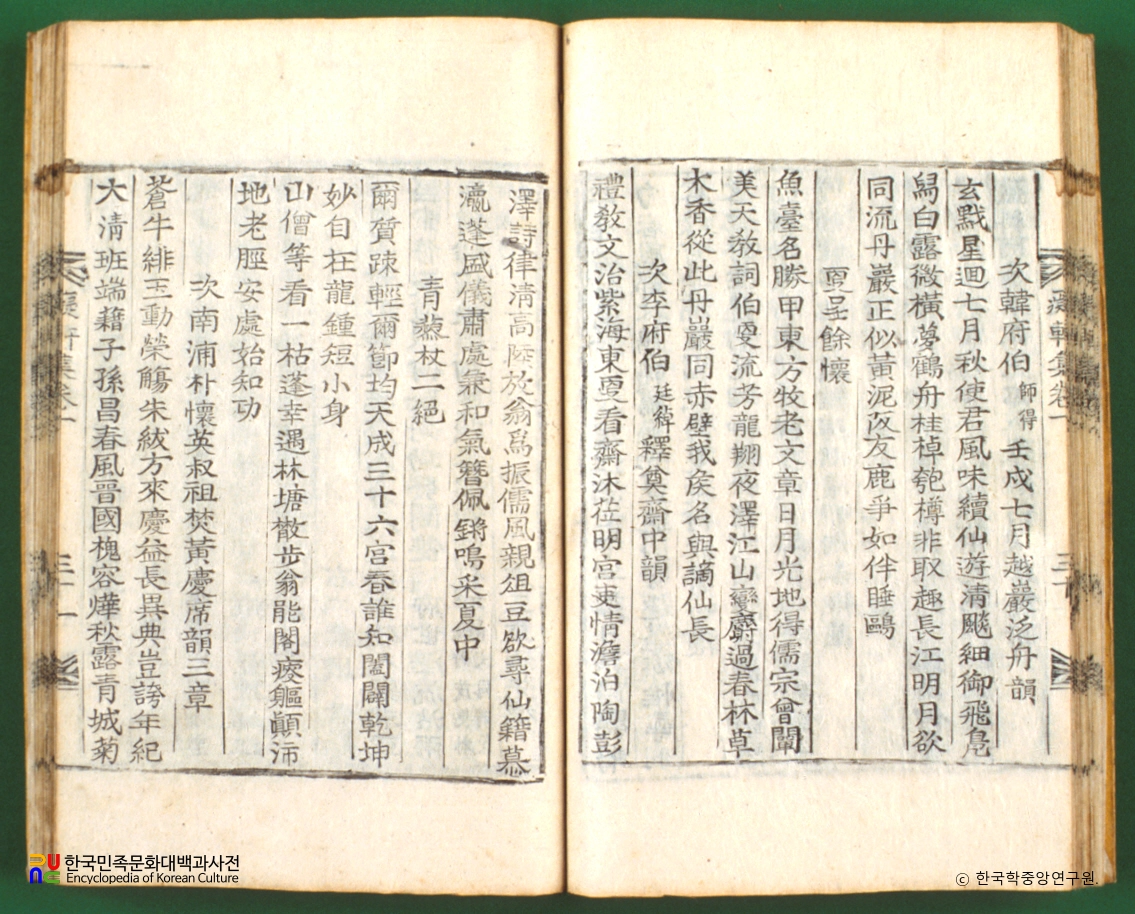 次韓府伯師得壬戌七月越巖泛舟韻
玄戰星迴七月秋使君風味續仙遊清飈細御飛鳧
舄白露微橫夢鶴舟桂棹匏樽非取趣長江明月欲
同流丹巖正似黃泥坂友鹿爭如伴睡鷗
夏呈餘懷
魚臺名勝甲東方牧老文章日月光地得儒宗會闡
美天敎詞伯夏流芳龍翔夜澤江山變麝過春林草
木香從此丹巖同赤壁我矦名與謫仙長
次李府伯廷韡釋奠齋中韻
禮敎文治紫海東夏看齋沐莅明宮吏情澹泊陶彭
澤詩律清高陸放翁爲振儒風親俎豆欲尋仙籍慕
瀛蓬盛儀肅處兼和氣簪佩鏘鳴采夏中
青藜杖二絕
爾質踈輕爾節均天成三十六宮春誰知闔闢乾坤
妙自在龍鍾短小身
山僧等看一枯蓬幸遇林塘散步翁能閣疲軀顚沛
地老脛安處始知功
次南浦朴懷英叔祖焚黃慶席韻三章
蒼牛緋玉動榮觴朱紱方來慶益長異典豈誇年紀
大清班端藉子孫昌春風晉國槐容燁秋露青城菊
軒集卷一
三十
軒集卷一
三十一
한국민족문화대백과사전
Encyclopedia of Korean Culture
ⓒ 한국학중앙연구원.